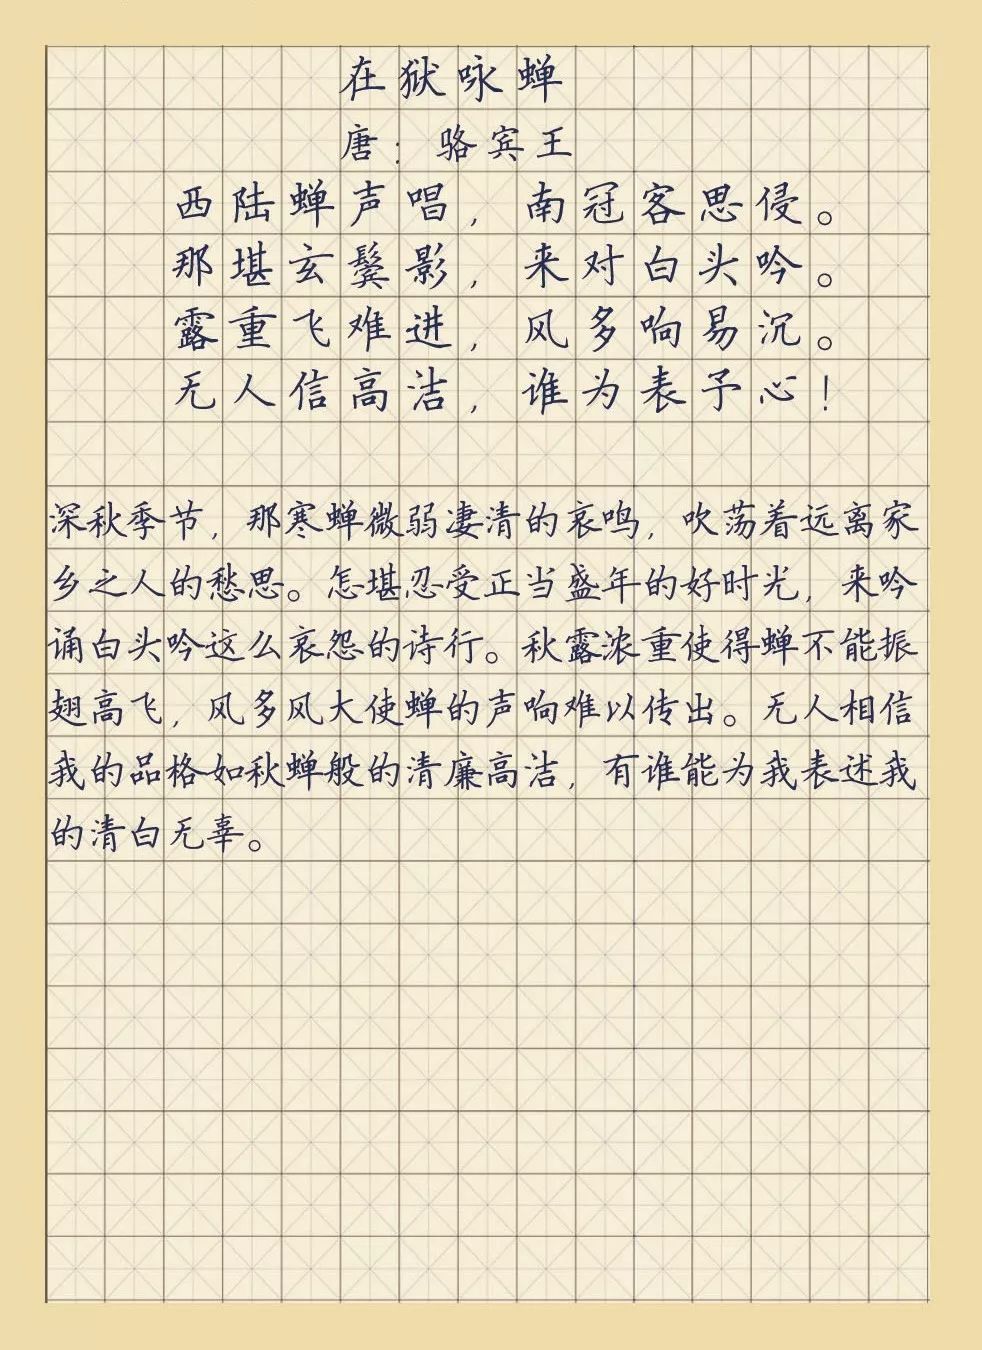 在狱咏蝉
唐：骆宾王
西陆蝉声唱，南冠客思侵。
那堪玄鬓影，来对白头吟。
露重飞难进，风多响易沉。
无人信高洁，谁为表予心！
深秋季节，那寒蝉微弱凄清的哀鸣，吹荡着远离家
乡之人的愁思。怎堪忍受正当盛年的好时光，来吟
诵白头吟这么哀怨的诗行。秋露浓重使得蝉不能振
翅高飞，风多风大使蝉的声响难以传出。无人相信
我的品格如秋蝉般的清廉高洁，有谁能为我表述我
的清白无辜。